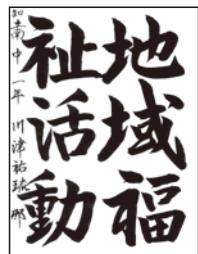 地域福
祉活動
知南中一年 川津祐琉那